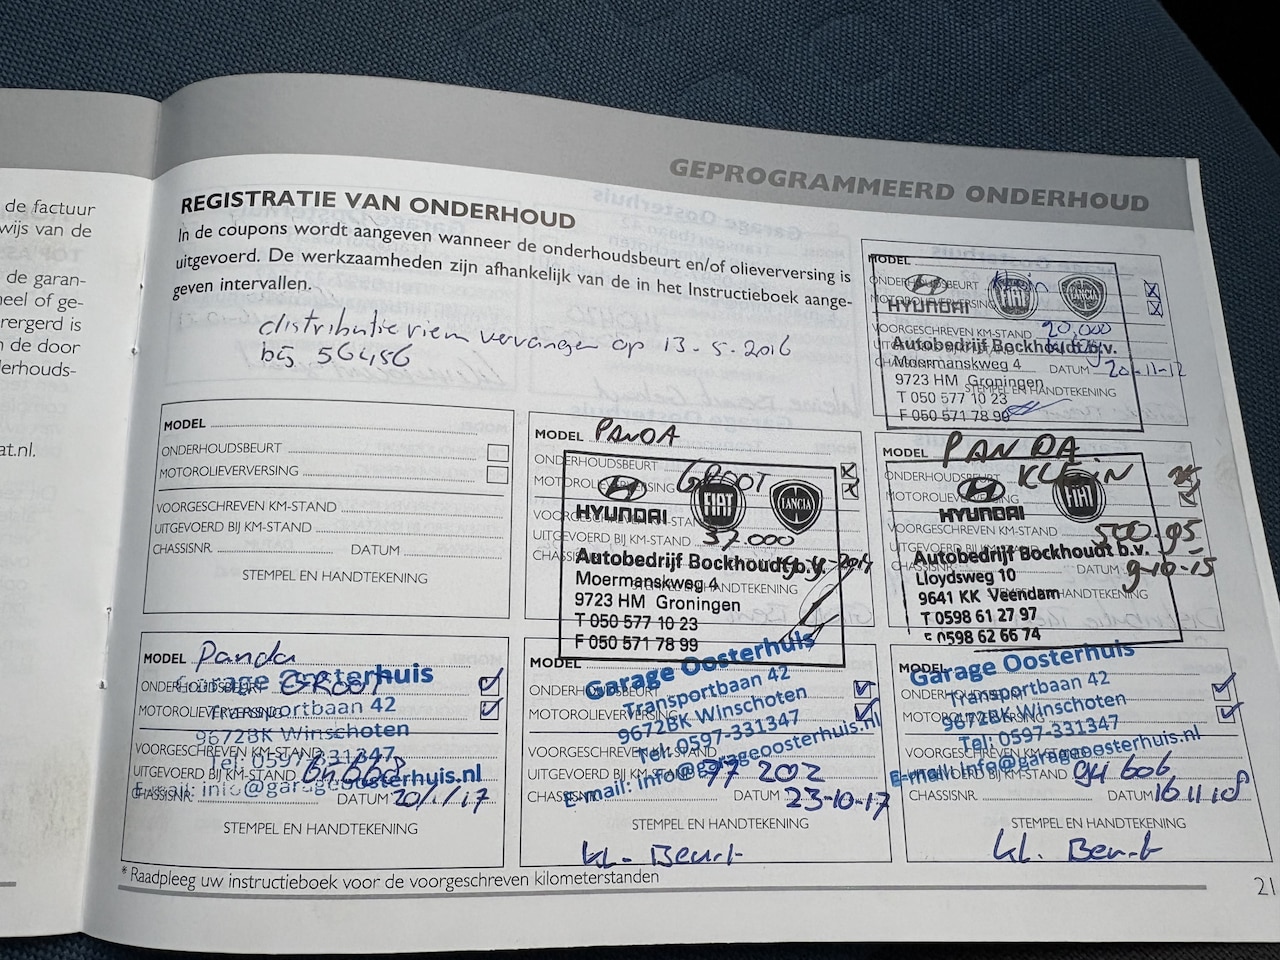 de factuur
wijs van de
de garan-
heel of ge-
rergerd is
n de door
erhouds-
at.nl.
GEPROGRAMMEERD ONDERHOUD
REGISTRATIE VAN ONDERHOUD
In de coupons wordt aangeven wanneer de onderhoudsbeurt en/of olieverversing is
uitgevoerd. De werkzaamheden zijn afhankelijk van de in het Instructieboek aange-
geven intervallen.
distributie riem vervangen op 13-5-2016
bij 56456
MODEL
ONDERHOUDSBEURT
MOTOROLIEVERVERSING
HYUNDAI FIAT LANCIA
VOORGESCHREVEN KM-STAND 20.000
Autobedrijf Bockhoudt b.v.
Moermanskweg 4
DATUM 20-11-12
9723 HM Groningen
STEMPEL EN HANDTEKENING
T 050 577 10 23
F 050 571 78 99
MODEL
ONDERHOUDSBEURT
MOTOROLIEVERVERSING
VOORGESCHREVEN KM-STAND
UITGEVOERD BIJ KM-STAND
CHASSISNR. DATUM
STEMPEL EN HANDTEKENING
MODEL PANDA
ONDERHOUDSBEURT GROOT
MOTOROLIEVERVERSING
HYUNDAI FIAT LANCIA
VOORGESCHREVEN KM-STAND
UITGEVOERD BIJ KM-STAND 37.000
Autobedrijf Bockhoudt b.v.
Moermanskweg 4
9723 HM Groningen
T 050 577 10 23
F 050 571 78 99
MODEL PANDA
ONDERHOUDSBEURT KLEIN
MOTOROLIEVERVERSING
HYUNDAI FIAT
VOORGESCHREVEN KM-STAND
Autobedrijf Bockhoudt b.v.
DATUM 9-10-15
Lloydsweg 10
9641 KK Veendam
T 0598 61 27 97
F 0598 62 66 74
MODEL Panda
Garage Oosterhuis
ONDERHOUDSBEURT GROOT
Transportbaan 42
MOTOROLIEVERVERSING
9672BK Winschoten
VOORGESCHREVEN KM-STAND
Tel: 0597-331347
UITGEVOERD BIJ KM-STAND
E-mail: info@garageoosterhuis.nl
CHASSISNR. DATUM 20/1/17
STEMPEL EN HANDTEKENING
MODEL
Garage Oosterhuis
ONDERHOUDSBEURT
Transportbaan 42
MOTOROLIEVERVERSING
9672BK Winschoten
VOORGESCHREVEN KM-STAND
Tel: 0597-331347
UITGEVOERD BIJ KM-STAND 77 202
E-mail: info@garageoosterhuis.nl
CHASSISNR. DATUM 23-10-17
STEMPEL EN HANDTEKENING
kl. Beurt
MODEL
Garage Oosterhuis
ONDERHOUDSBEURT
Transportbaan 42
MOTOROLIEVERVERSING
9672BK Winschoten
VOORGESCHREVEN KM-STAND
Tel: 0597-331347
UITGEVOERD BIJ KM-STAND
E-mail: info@garageoosterhuis.nl
CHASSISNR. DATUM 16 11 18
STEMPEL EN HANDTEKENING
kl. Beurt
* Raadpleeg uw instructieboek voor de voorgeschreven kilometerstanden
21